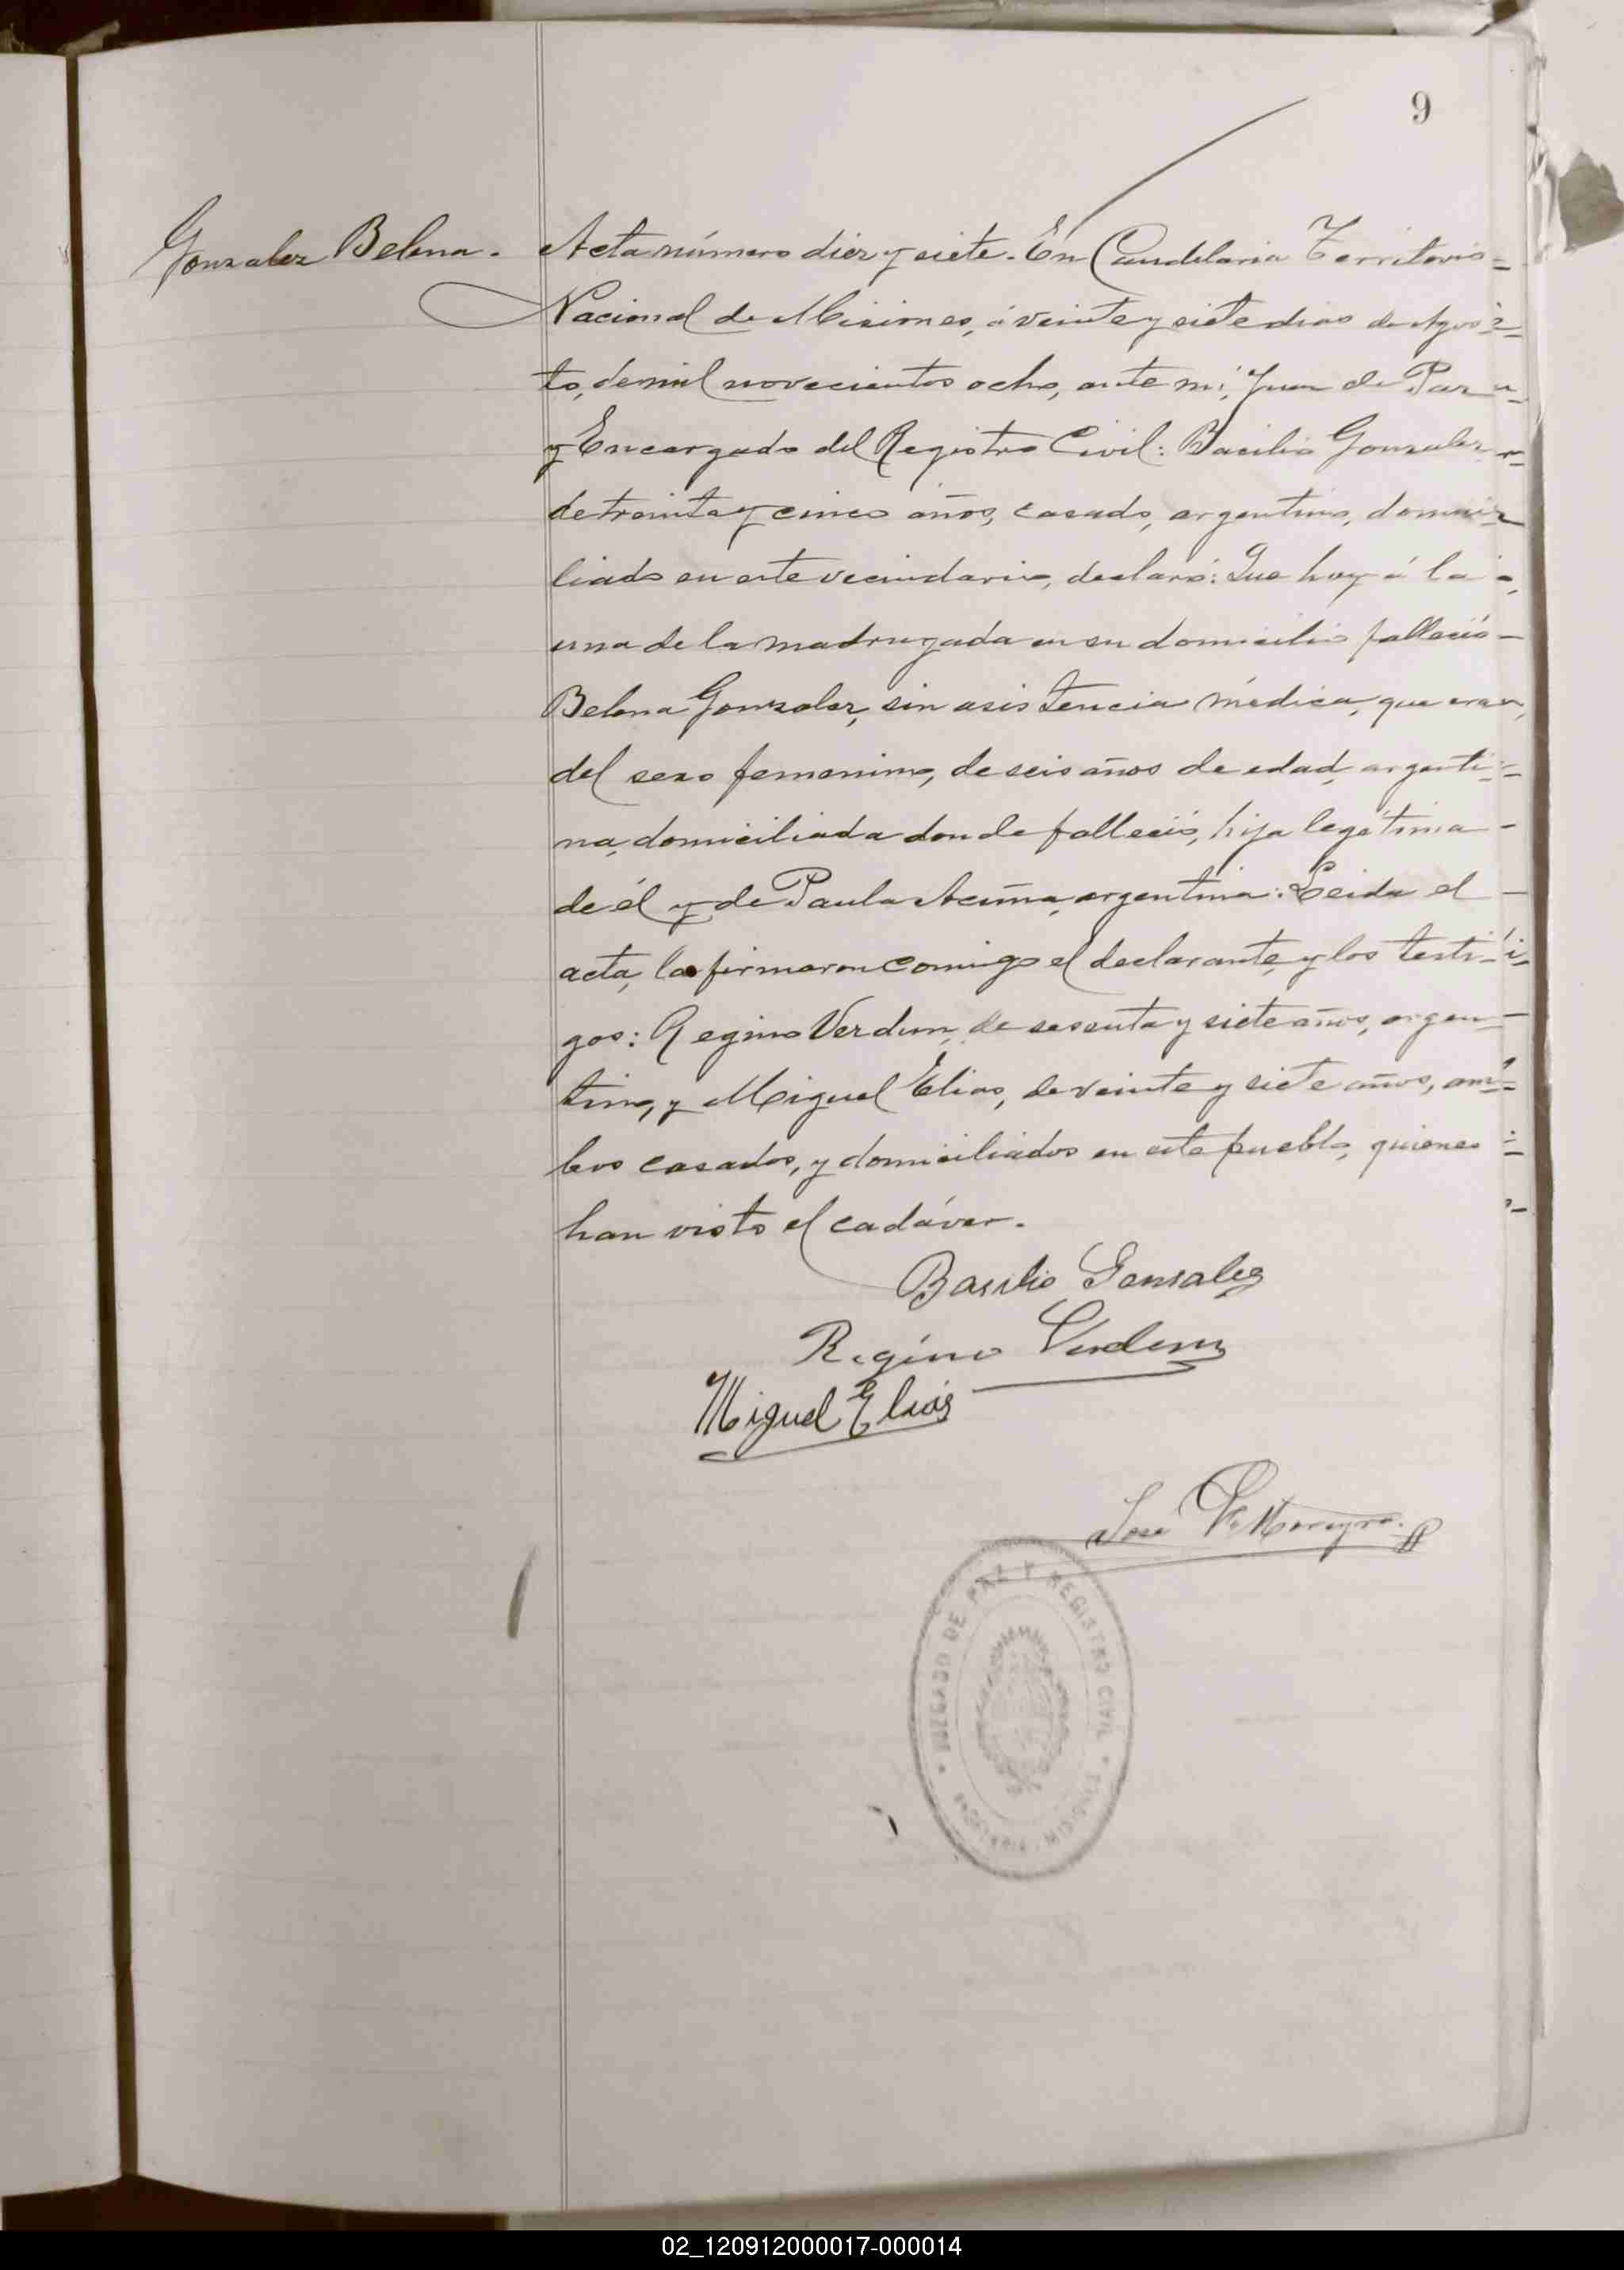 9
Gonzalez Belena.
Acta número diez y siete. En Candelaria Territorio
Nacional de Misiones, á veinte y siete dias de Agos-
to, de mil novecientos ocho, ante mi, Juez de Paz
y Encargado del Registro Civil: Basilio Gonzalez
de treinta y cinco años, casado, argentino, domici-
liado en este vecindario, declaró: Que hoy á la
una de la madrugada en su domicilio falleció
Belena Gonzalez, sin asistencia médica, que era
del sexo femenino, de seis años de edad, argenti-
na, domiciliada donde falleció, hija legítima
de él y de Paula Acuña, argentina: Leida el
acta, la firmaron conmigo el declarante, y los testi-
gos: Regino Verdun, de sesenta y siete años, argen-
tino, y Miguel Elias, de veinte y siete años, am-
bos casados, y domiciliados en este pueblo, quienes
han visto el cadáver.
Basilio Gonsales
Regino Verdun
Miguel Eliás
José Moreyra
JUZGADO DE PAZ Y REGISTRO CIVIL
CANDELARIA - MISIONES
02_120912000017-000014